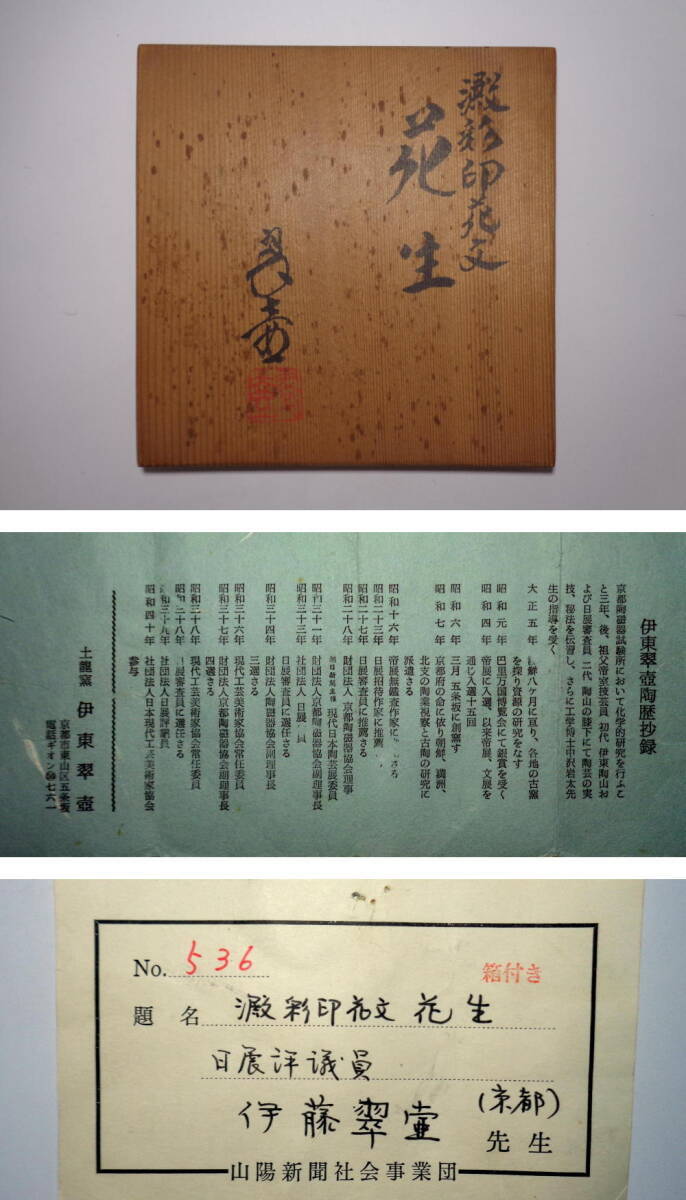 澱彩印花文
花生
翠壷
伊東翠壺陶歴抄録
京都陶磁器試験所において化学的研究を行ふこ
と三年、後、祖父帝室技芸員 初代 伊東陶山お
よび日展審査員 二代 陶山の膝下にて陶芸の実
技、秘法を伝習し、さらに工学博士中沢岩太先
生の指導を受く
大正五年
鮮八ケ月に亘り、各地の古窯
を探り資源の研究をなす
昭和元年 巴里万国博覧会にて銀賞を受く
昭和四年 帝展に入選、以来帝展、文展を
通じ入選十五回
昭和六年 三月 五条坂に創窯す
昭和七年 京都府の命に依り朝鮮、満洲、
北支の陶業視察と古陶の研究に
派遣さる
昭和十六年 帝展無鑑査作家に
昭和二十三年 日展招待作家に推薦
昭和二十七年 日展審査員に推薦さる
昭和二十八年 財団法人 京都陶磁器協会理事
朝日新聞主催 現代日本陶芸展委員
昭和三十一年 財団法人京都陶磁器協会副理事長
昭和三十三年 社団法人 日展 員
日展審査員に選任さる
昭和三十四年 財団法人陶磁器協会副理事長
三選さる
昭和三十六年 現代工芸美術家協会常任委員
昭和三十七年 財団法人京都陶磁器協会副理事長
四選さる
昭和三十八年 現代工芸美術家協会常任委員
昭和三十八年 日展審査員に選任さる
昭和三十九年 社団法人日展評議員
昭和四十年 社団法人日本現代工芸美術家協会
参与
土龍窯 伊東翠壺
京都市東山区五条坂
電話ギオン㊿七六一
No. 536
箱付き
題名 澱彩印花文 花生
日展評議員
伊藤翠壷 (京都)
先生
山陽新聞社会事業団